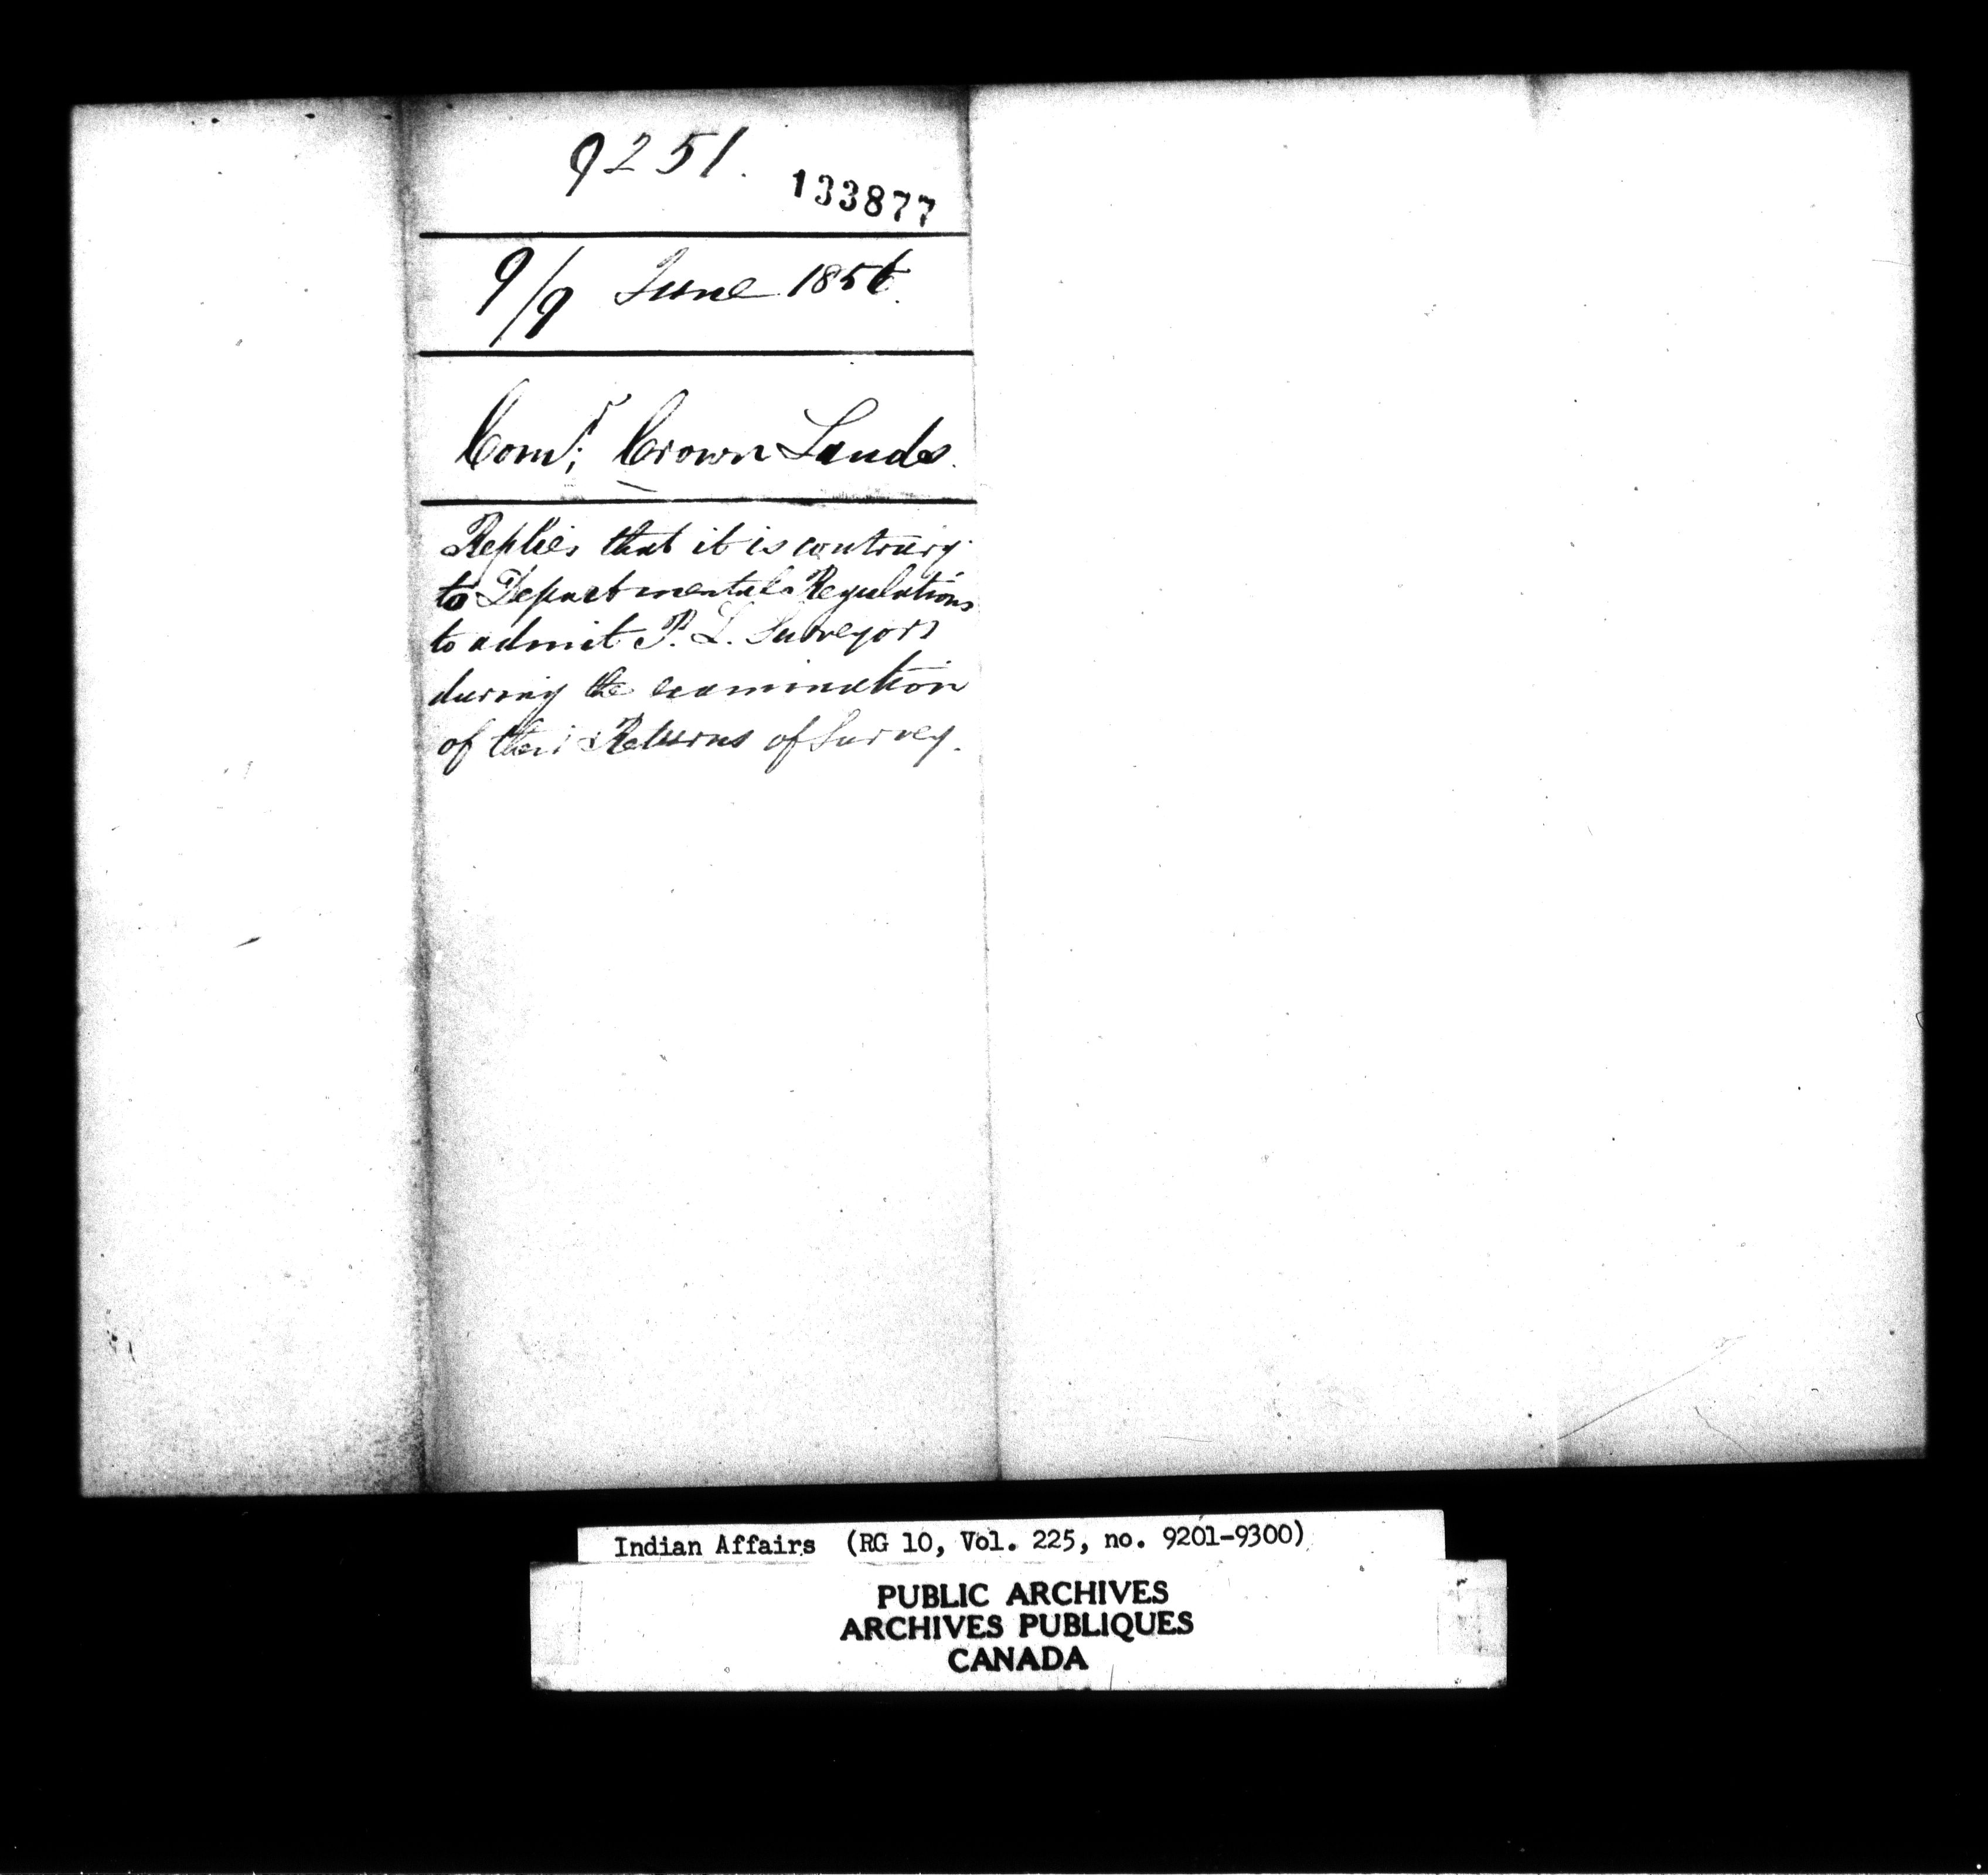 9251.
133877
9/9 June 1856.
Comr. Crown Lands.
Replies that it is contrary
to Departmental Regulations
to admit P. L. Surveyors
during the examination
of their Returns of Survey.
Indian Affairs (RG 10, Vol. 225, no. 9201-9300)
PUBLIC ARCHIVES
ARCHIVES PUBLIQUES
CANADA